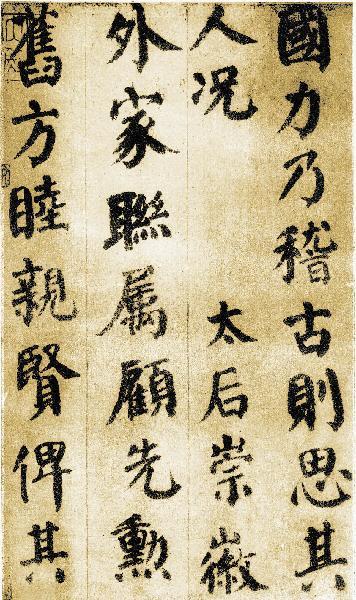 國力乃稽古則思其
人况太后崇徽
外家聯属顧先勲
舊方睦親賢俾其